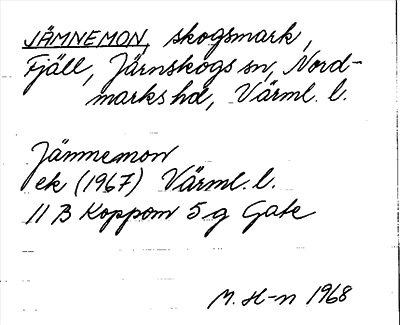 JÄMNEMON, skogsmark,
Fjäll, Järnskogs sn, Nord-
marks hd, Värml. l.
Jämnemon
ek (1967) Värml. l.
11 B Koppom 5 g Gate
M. H-n 1968